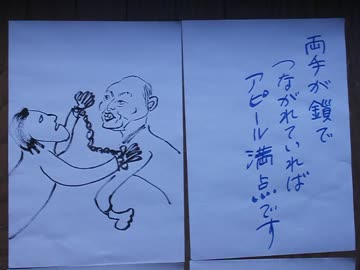 両手が鎖で
つながれていれば
アピール満点です